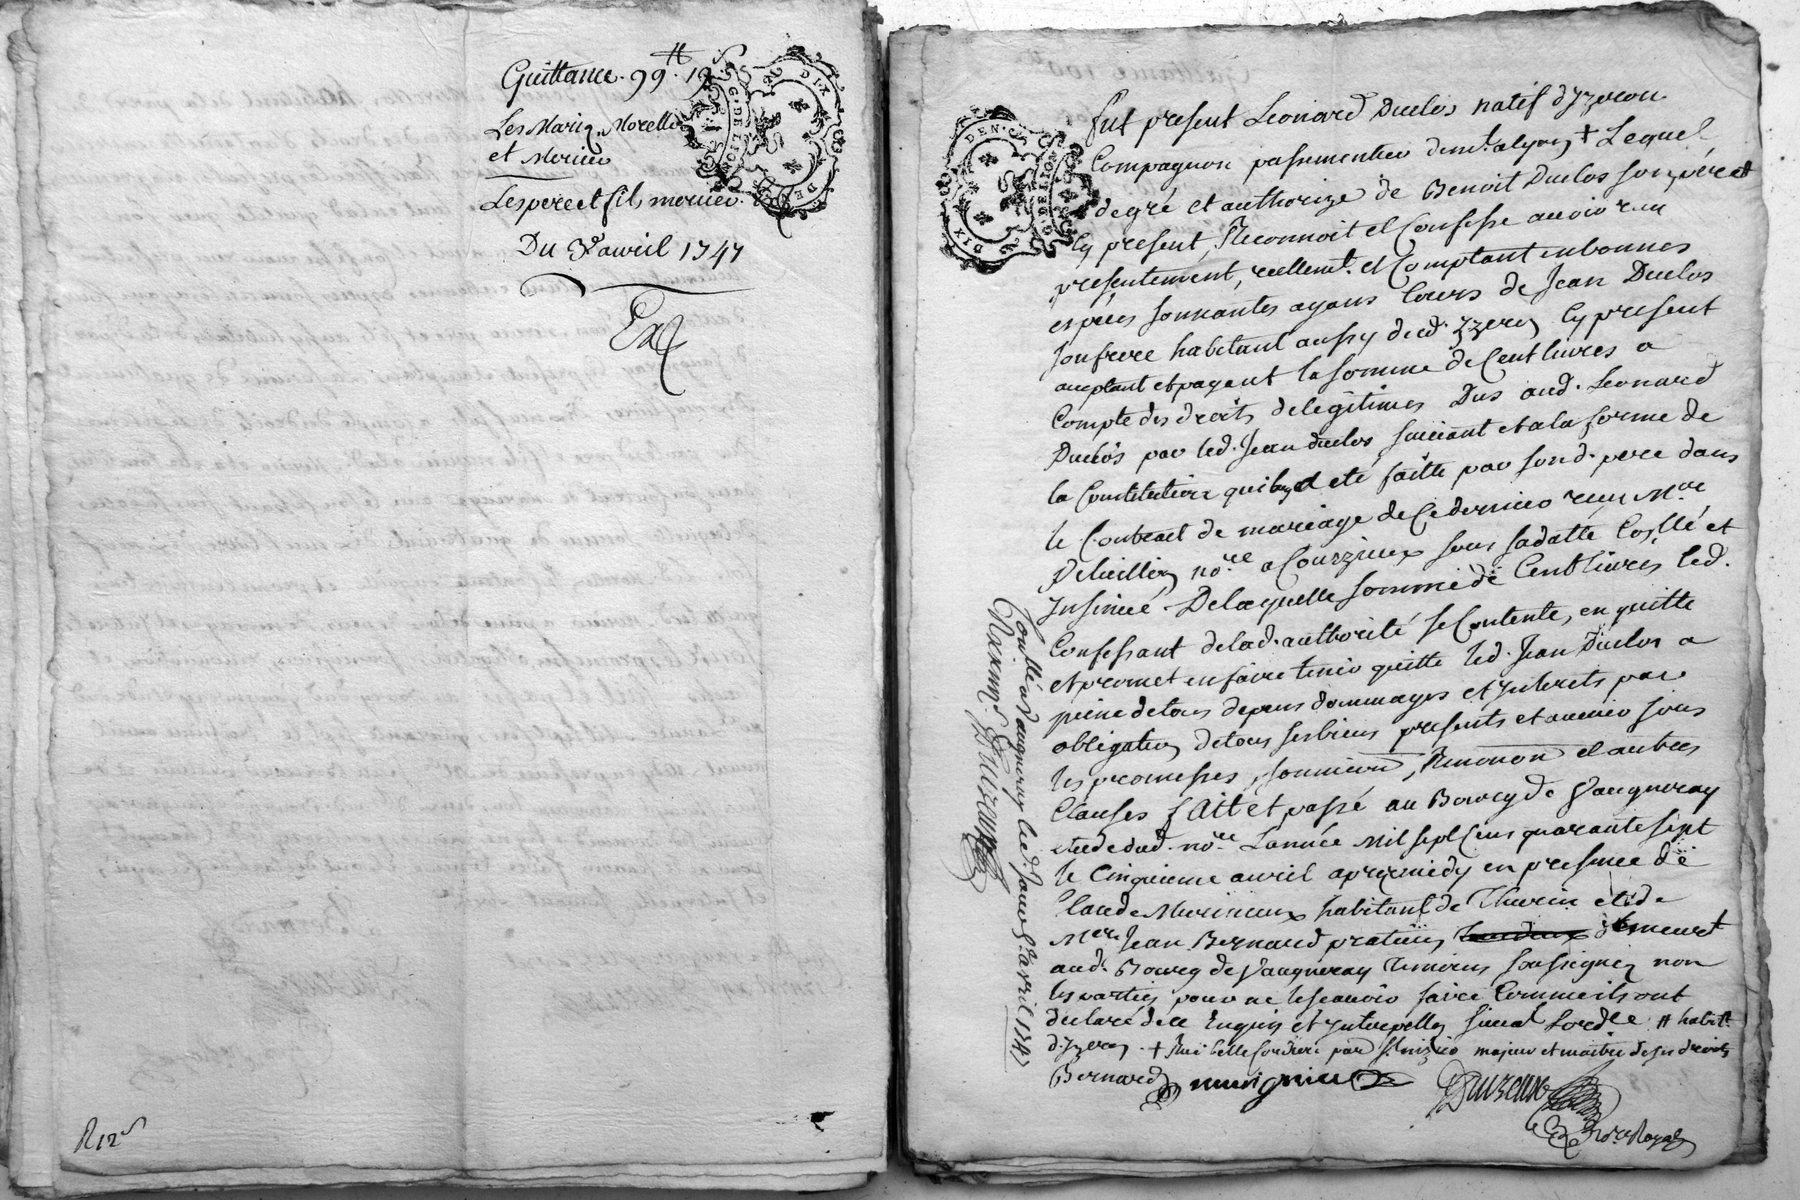 Quittance. 99 ll. 19 s
Les Mariez Morellon
et Mercier
Les pere et fils mercier
Du 3e avril 1747
Ex
R 12 s
G. DE LION
DIX DEN
DIX DEN. G. DE LION
fut present Leonard Duclos natif d'Yzeron
Compagnon passementier demt. a lyon + Lequel
degré et authorizé de Benoit Duclos son pere #
cy present, Reconnoit et Confesse avoir reu
presentement, reellemt. et Comptant en bonnes
espèces sonnantes ayans Cours de Jean Duclos
son frere habitant aussy dud. Yzeron cy present
acceptant et payant la somme de Cent livres a
Compte des droits de legitimes Dus aud. Leonard
Duclos par led. Jean duclos suivant et a la forme de
la Constitution qui luy a eté faitte par sond. pere dans
le Contract de mariage de Ce dernier reçu Me
Delieillon nore a Courzieux sous sa datte Collé et
Insinué. De laquelle somme de Cent livres led.
Confessant de lad. authorité se Contente, en quitte
et promet en faire tenir quitte led. Jean Duclos a
peine de tous depens dommages et Interets par
obligation de tous ses biens presents et avenir sous
les promesses, soumissions, Renonon et autres
Clauses fAit et passé au Bourg de Vaugneray
etude dud. nore L'année Mil sept Cens quarante sept
le Cinquieme avril apres midy en presence de
Claude Murigneux habitant de Thurin et de
Mere Jean Bernard praticien demeurt
aud. Bourg de Vaugneray temoins soussignez non
les parties pour ne le sçavoir faire Comme ils ont
declaré de ce Enquis et Interpellez suivat l'ordce # habitt
d'Yzeron. + Ruë belle Cordiere par. St. nizier majeur et maitre de ses droits
Bernard murigneux Duizeux
Nore Royal
Conllé a Vaugneray led. Jour 5e avril 1747